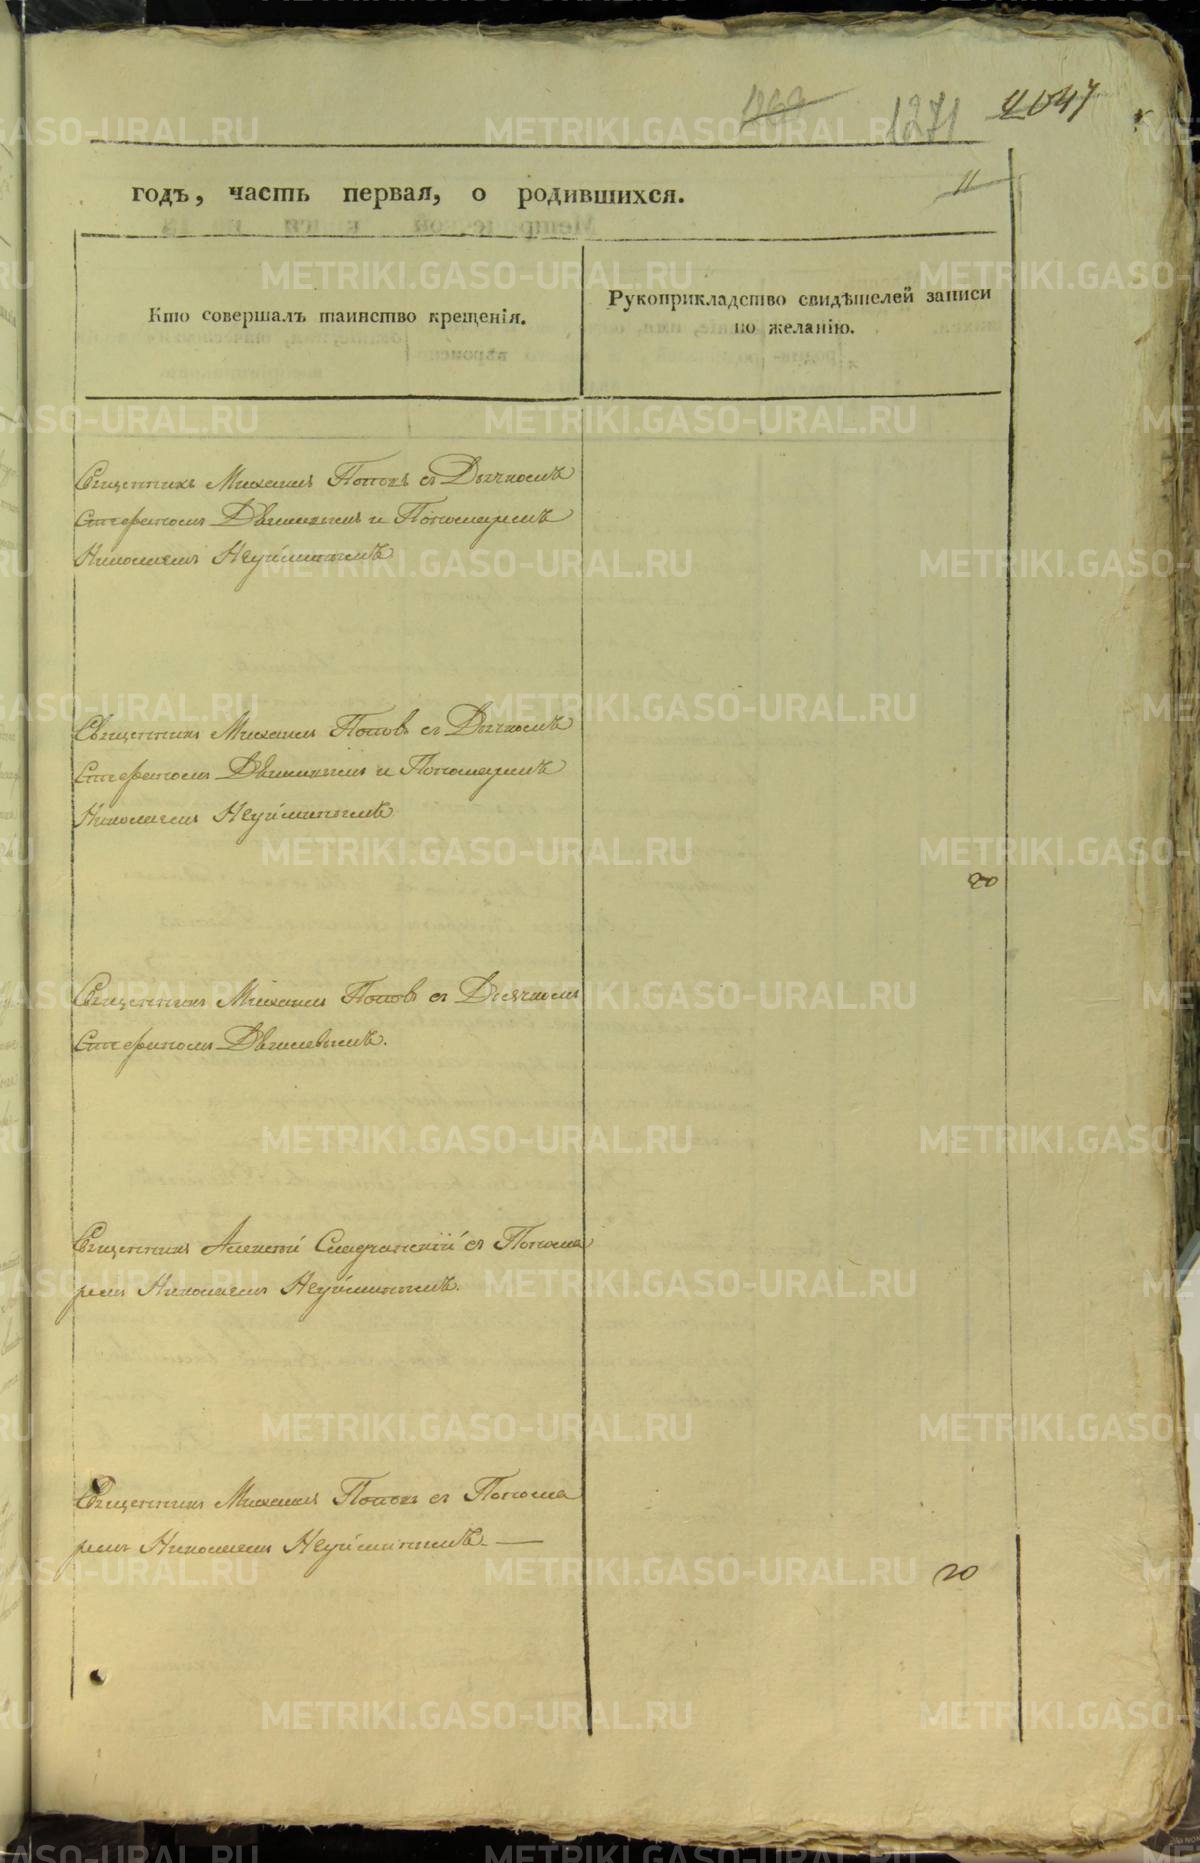 1271 4047
11
годъ, часть первая, о родившихся.
Кто совершалъ таинство крещенія.
Рукоприкладство свидѣтелей записи
по желанію.
Священникъ Михаилъ Поповъ съ Дьячкомъ
Стефаномъ и Пономаремъ
Николаемъ Неуйминымъ
Священникъ Михаилъ Поповъ съ Дьячкомъ
Стефаномъ и Пономаремъ
Николаемъ Неуйминымъ
20
Священникъ Михаилъ Поповъ съ Дьячкомъ
Стефаномъ
Священникъ Алексѣй съ Понома
ремъ Николаемъ Неуйминымъ.
Священникъ Михаилъ Поповъ съ Понома
ремъ Николаемъ Неуйминымъ. —
20
METRIKI.GASO-URAL.RU